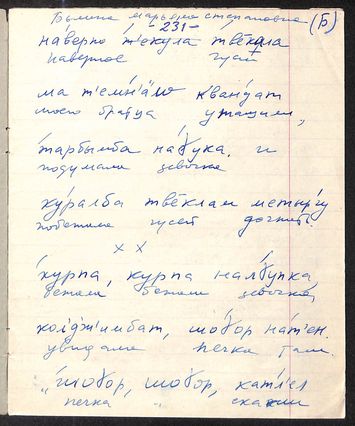 Былина марьяна степановна (Б)
-231-
наверно т'екула твёкла
наверное гуси
ма т'емн'ал квандат
моего братца утащили,
тарбымба на ука. и
подумала девочка
куралба твёклам метыргу
побежала гусей догнать.
× ×
курпа, курпа налӱупка
бежала бежала девочка,
колджимбат, шоӷор натен.
увидала печка там.
"шоӷор, шоӷор, катлел
печка " скажи